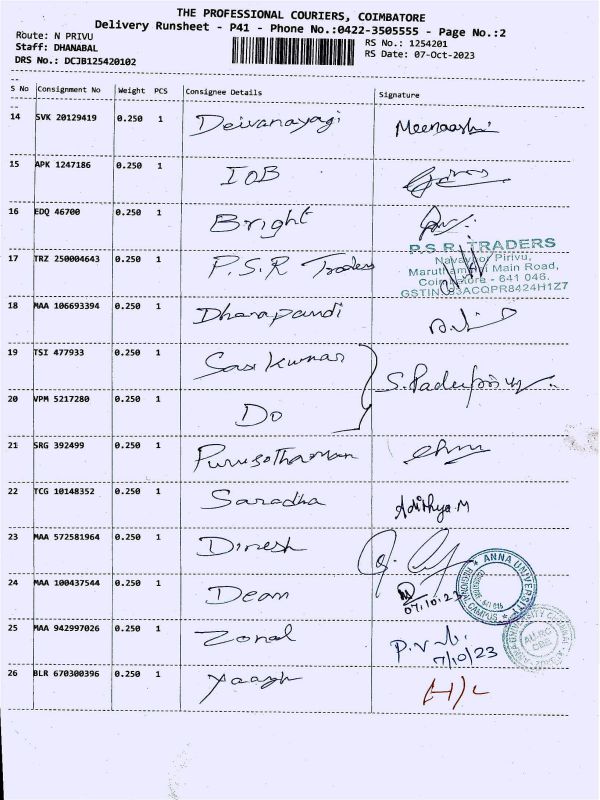 THE PROFESSIONAL COURIERS, COIMBATORE
Delivery Runsheet - P41 - Phone No.:0422-3505555 - Page No.:2
Route: N PRIVU
RS No.: 1254201
Staff: DHANABAL
RS Date: 07-Oct-2023
DRS No.: DCJB125420102
S No Consignment No Weight PCS Consignee Details Signature
14 SVK 20129419 0.250 1 Deivanayagi Meenaashi
15 APK 1247186 0.250 1 IOB
16 EDQ 46700 0.250 1 Bright
17 TRZ 250004643 0.250 1 P.S.R Traders
P.S.R. TRADERS
Pirivu,
Main Road,
Coimbatore - 641 046.
GSTIN 33ACQPR8424H1Z7
18 MAA 106693394 0.250 1 Dharapandi
19 TSI 477933 0.250 1 Sasi kumar
20 VPM 5217280 0.250 1 Do
21 SRG 392499 0.250 1 Purusothaman
22 TCG 10148352 0.250 1 Saradha Adithya.M
23 MAA 572581964 0.250 1 Dinesh
24 MAA 100437544 0.250 1 Dean 07.10.23
ANNA UNIVERSITY
REGIONAL CAMPUS
25 MAA 942997026 0.250 1 Zonal 7/10/23
26 BLR 670300396 0.250 1 Yaazh